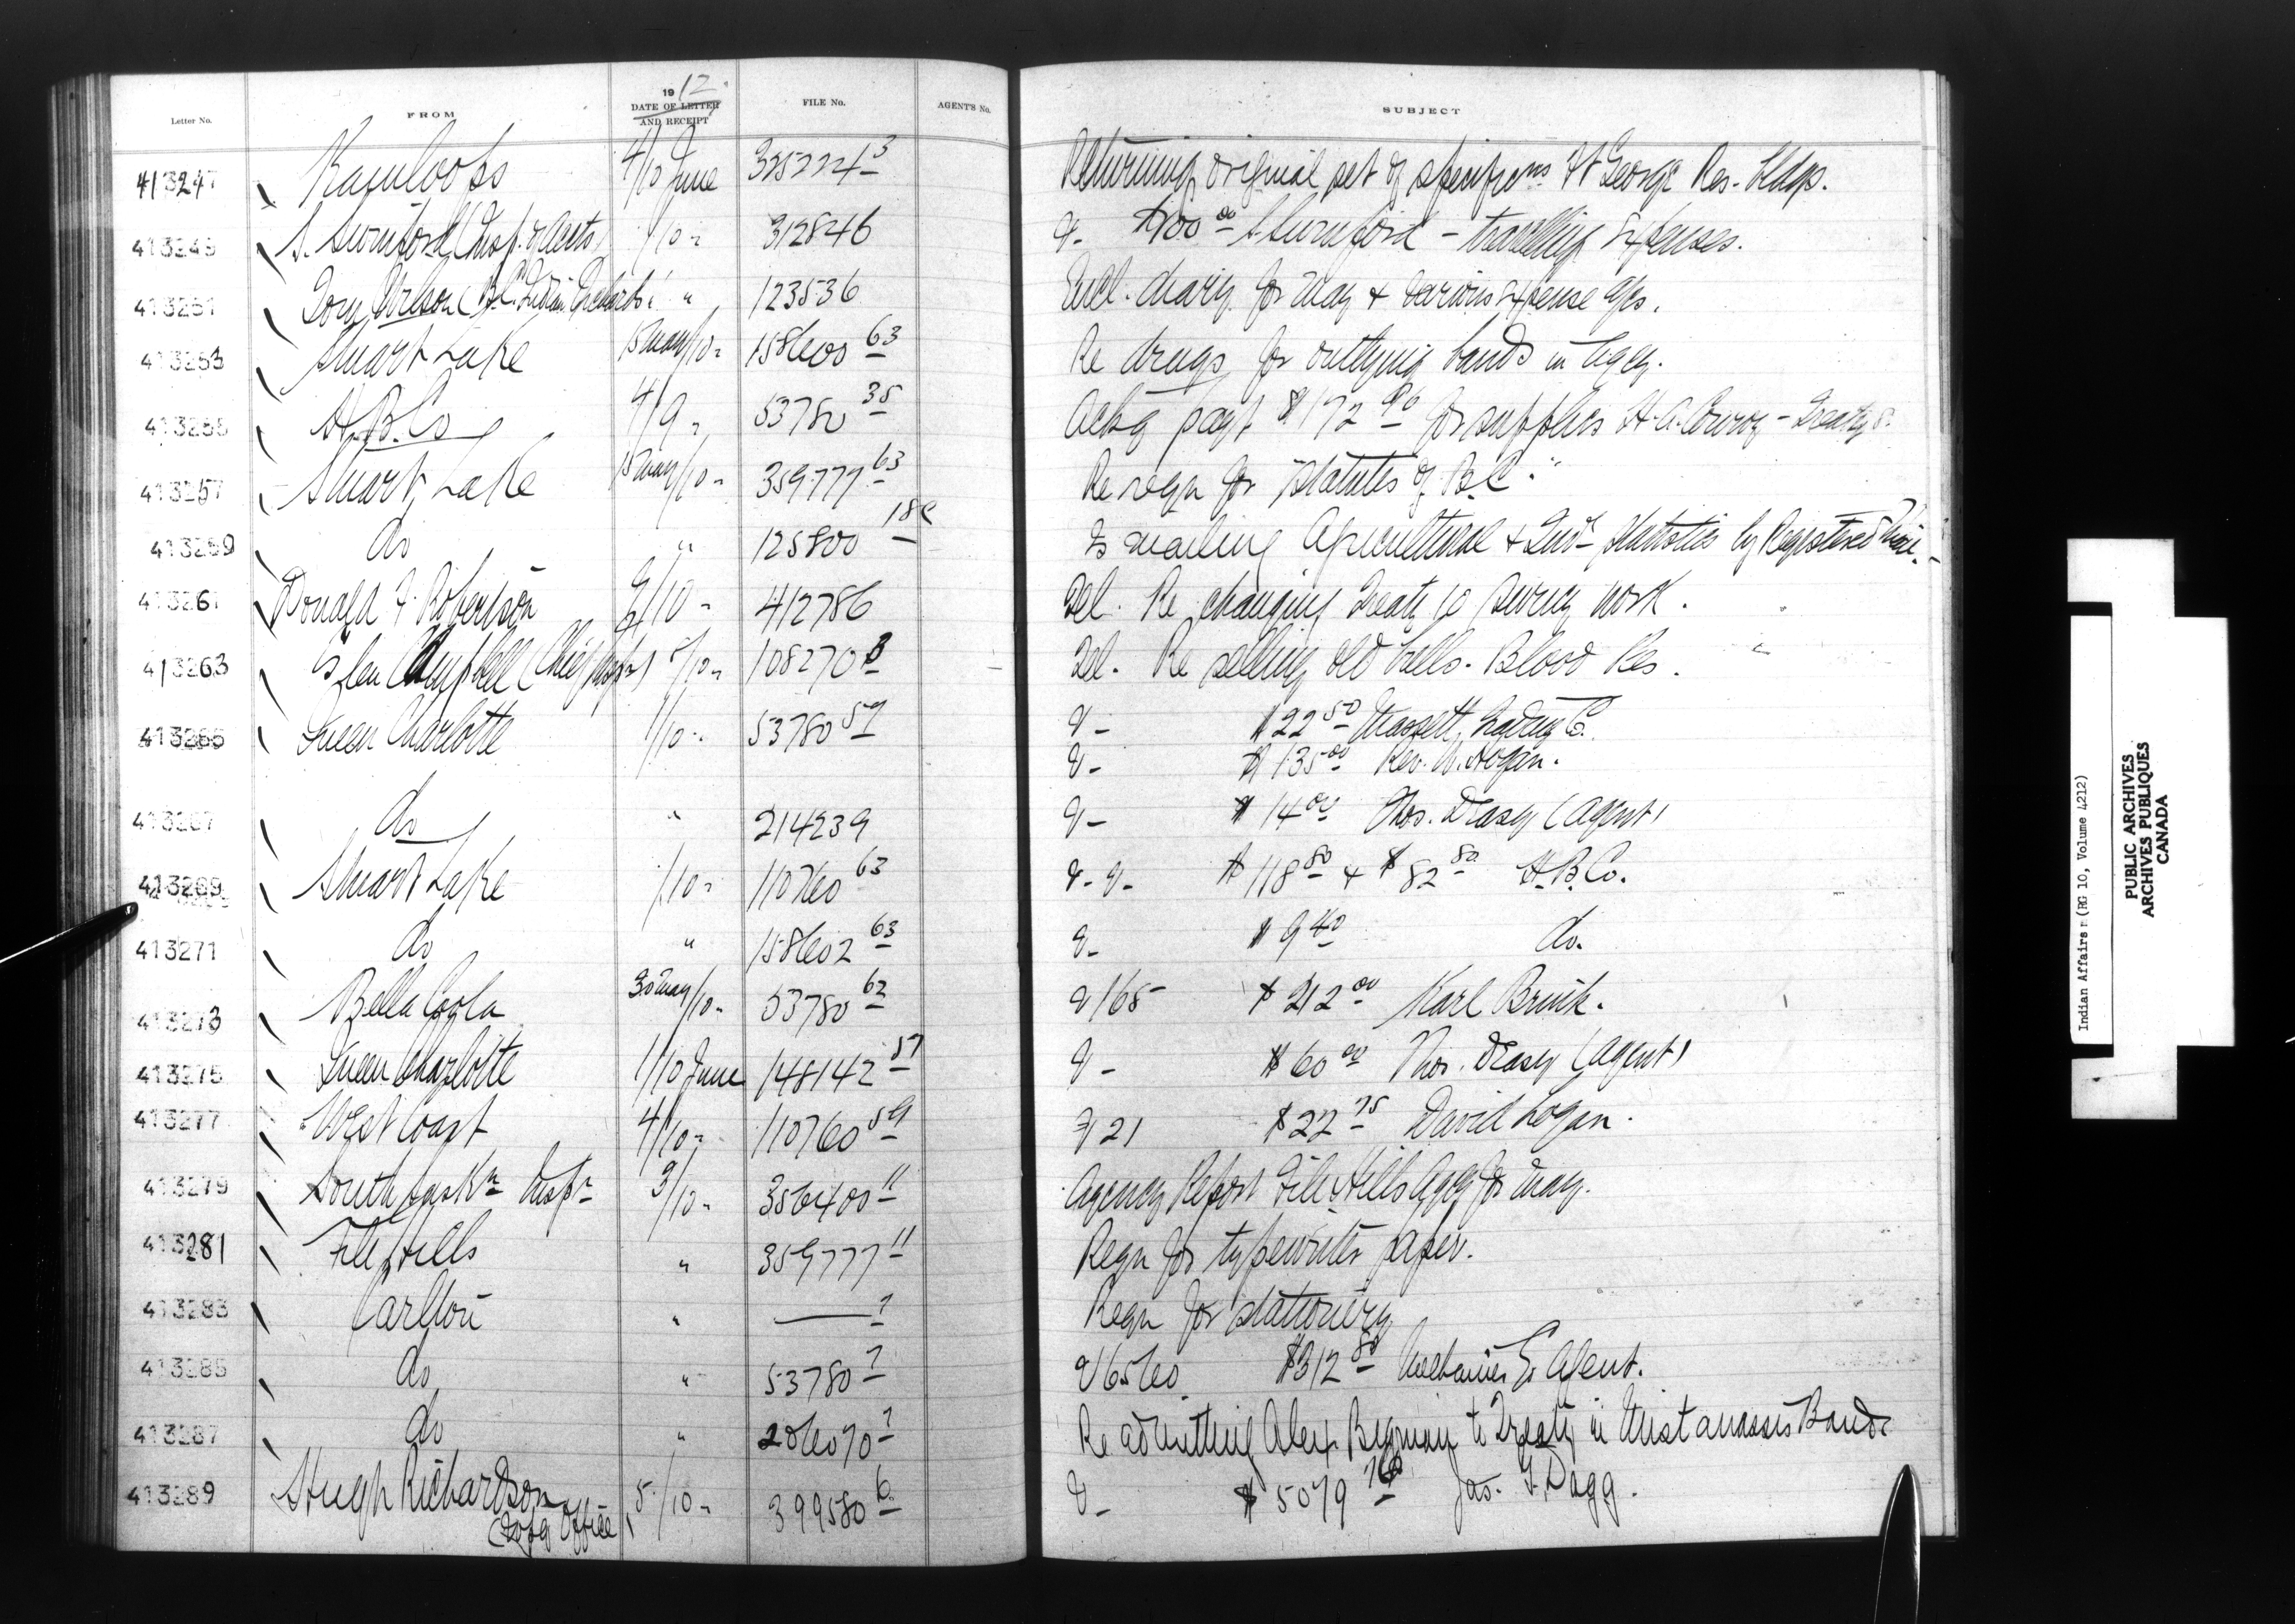 Letter No. FROM 1912 DATE OF LETTER AND RECEIPT FILE No. AGENT'S No. SUBJECT
413247 Kamloops 4/10 June 325224-3 Returning original set of specifions Ft George Res. bldgs.
413249 S. Swinford (Insp. of Accts) /10 " 312846 V- $100 00 Swinford - travelling expenses.
413251 Tom Wilson (B.C. Indian Orchards) " 123536 Encl. diary for May & various expense a/cs.
413253 Stuart Lake 15 May/10 " 158600 63 Re drugs for outlying bands in agcy.
413255 H.B. Co 4/9 " 53780 35 Ackg payt $172 90 for supplies H.A. Conroy - Treaty 8.
413257 Stuart Lake 15 May/10 " 359777 63 Re reqn for "Statutes of B.C."
413259 do " 125800 18c Is mailing Agricultural & Indl Statistics by Registered Mail.
413261 Donald F. Robertson 9/10 " 412786 Tel. Re changing Treaty 10 survey work.
413263 Glen Campbell (Chief Inspr) 5/10 " 108270 3 Tel. Re selling old bells. Blood Res.
413265 Queen Charlotte 1/10 " 53780 57 V- $22 50 Massett Trading Co.
V- $135 00 Rev. W. Hogan.
413267 do " 214239 V- $14 00 Thos. Deasy (Agent)
413269 Stuart Lake /10 " 110760 63 V-V- $118 80 & $82 80 H.B. Co.
413271 do " 158602 63 V- $9 40 do.
413273 Bella Coola 30 May/10 " 53780 62 V 165 $212 00 Karl Brink.
413275 Queen Charlotte 1/10 June 148142 57 V- $60 00 Thos. Deasy (Agent)
413277 West Coast 4/10 " 110760 59 V 21 $22 75 David Logan.
413279 South Saskn Inspr 3/10 " 356400 11 Agency Report File Hills Agcy for May.
413281 File Hills " 359777 11 Reqn for typewriter paper.
413283 Carlton " — 7 Reqn for stationery
413285 do " 53780 7 V 6560 $312 80 Agent.
413287 do " 206070 7 Re admitting Alex to Treaty in Mistawasis Band
413289 Hugh Richardson 5/10 " 399580 6 V- $5079 Jas. F. Dagg.
Office)
Indian Affairs (RG 10, Volume 4212)
PUBLIC ARCHIVES
ARCHIVES PUBLIQUES
CANADA